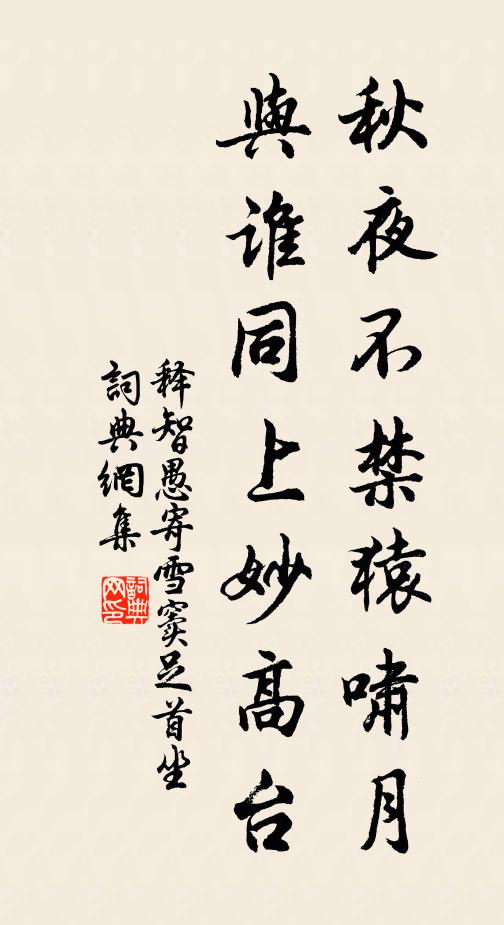 秋夜不禁猿啸月
與谁同上妙高台
释智愚寄雪窦足首坐
詞典網集
詞典网印